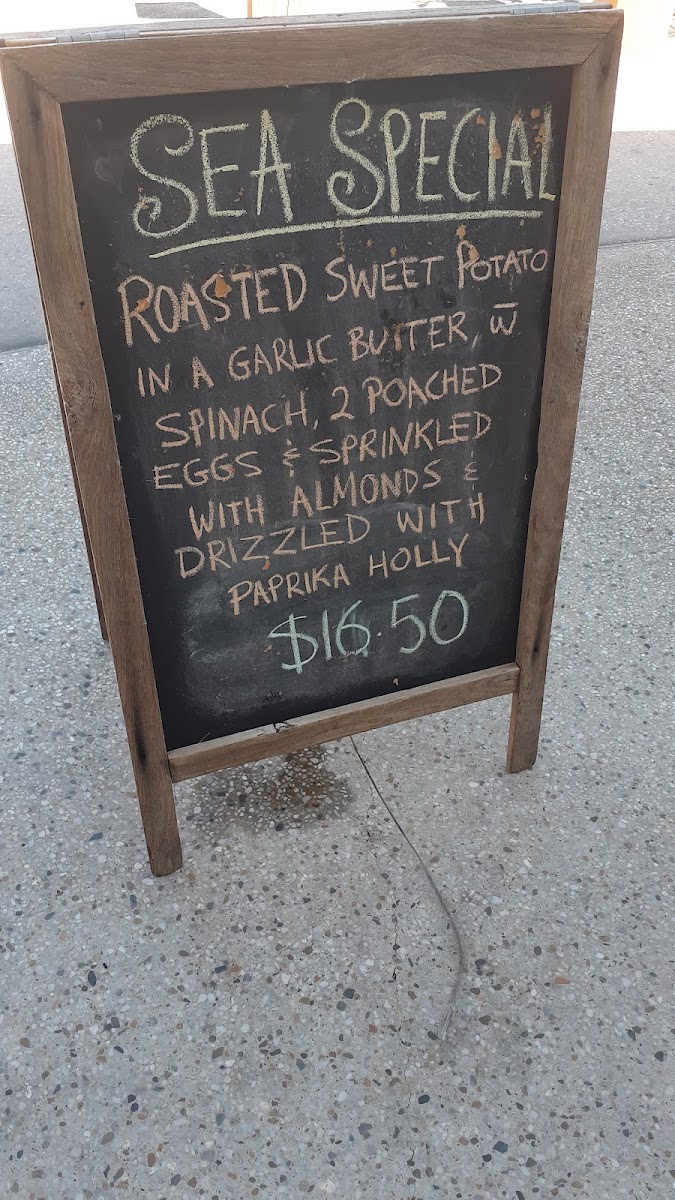 SEA SPECIAL
ROASTED SWEET POTATO
IN A GARLIC BUTTER, w̅
SPINACH, 2 POACHED
EGGS & SPRINKLED
WITH ALMONDS &
DRIZZLED WITH
PAPRIKA HOLLY
$16.50